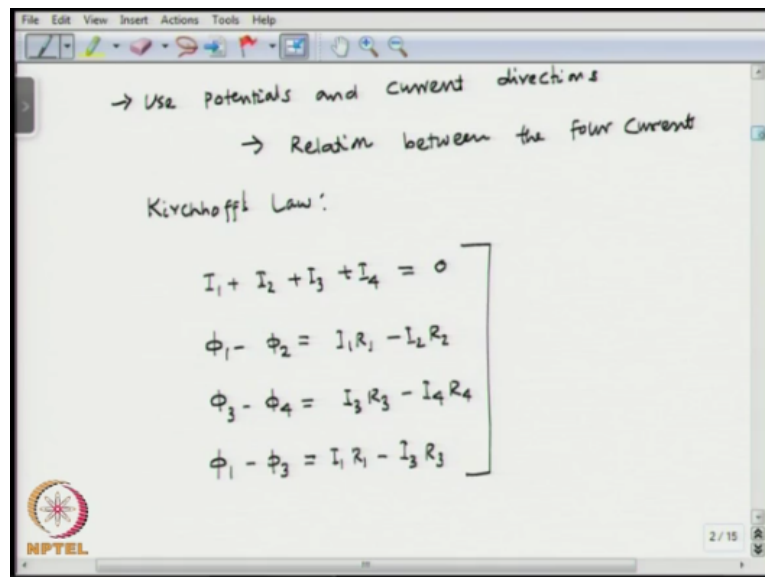 File Edit View Insert Actions Tools Help
→ Use potentials and current directions
→ Relation between the four current
Kirchhoff's Law:
I₁ + I₂ + I₃ + I₄ = 0
ϕ₁ - ϕ₂ = I₁R₁ - I₂R₂
ϕ₃ - ϕ₄ = I₃R₃ - I₄R₄
ϕ₁ - ϕ₃ = I₁R₁ - I₃R₃
NPTEL
2 / 15